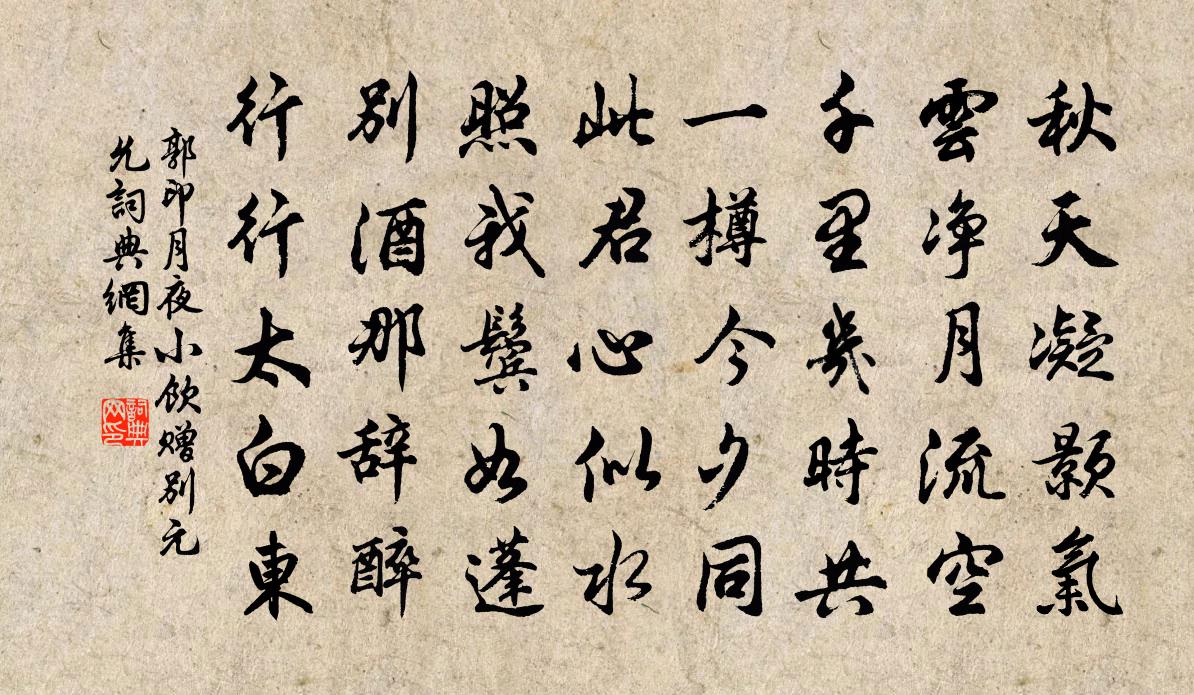 秋天凝顥氣
雲净月流空
千里幾時共
一樽今夕同
此君心似水
照我鬢如蓬
別酒那辞醉
行行太白東
郭印月夜小飲赠別元
允詞典網集
詞典
网印